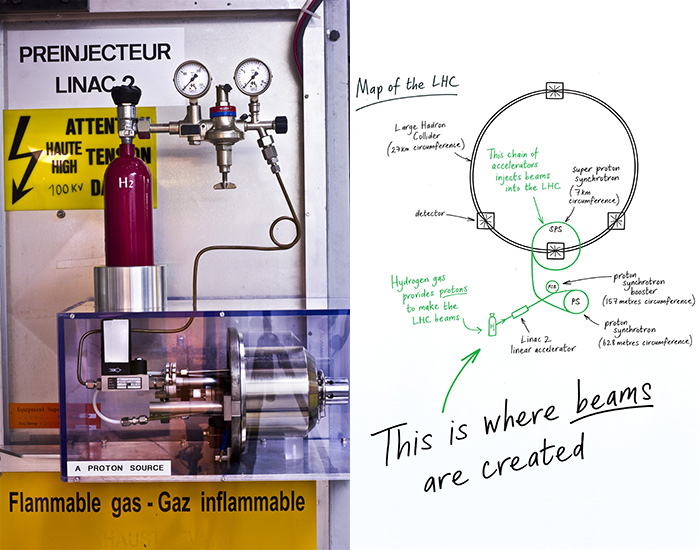 PREINJECTEUR
LINAC 2
ATTENTI
HAUTE TENSION
HIGH
100 KV DA
H2
A PROTON SOURCE
Flammable gas - Gaz inflammable
Map of the LHC
Large Hadron
Collider
(27km circumference)
This chain of
accelerators
injects beams
into the LHC
Super proton
synchrotron
(7km
circumference)
detector
SPS
Hydrogen gas
provides protons
to make the
LHC beams
PSB
proton
synchrotron
booster
(157 metres circumference)
PS
H
Linac 2
linear accelerator
proton
synchrotron
(628 metres circumference)
This is where beams
are created